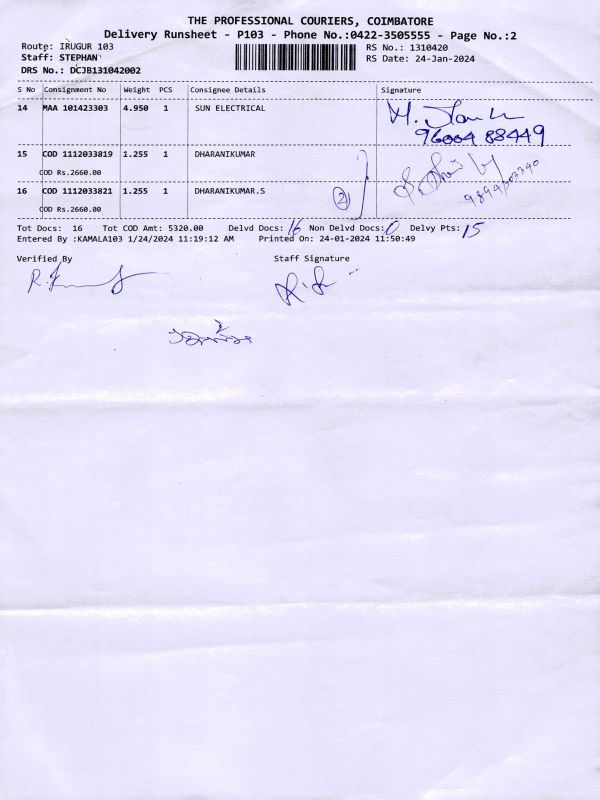 THE PROFESSIONAL COURIERS, COIMBATORE
Delivery Runsheet - P103 - Phone No.:0422-3505555 - Page No.:2
Route: IRUGUR 103
RS No.: 1310420
Staff: STEPHAN
RS Date: 24-Jan-2024
DRS No.: DCJB131042002
S No Consignment No Weight PCS Consignee Details Signature
14 MAA 101423303 4.950 1 SUN ELECTRICAL
96004 88449
15 COD 1112033819 1.255 1 DHARANIKUMAR
COD Rs.2660.00
16 COD 1112033821 1.255 1 DHARANIKUMAR.S
2
COD Rs.2660.00
Tot Docs: 16 Tot COD Amt: 5320.00 Delvd Docs: 16 Non Delvd Docs: 0 Delvy Pts: 15
Entered By :KAMALA103 1/24/2024 11:19:12 AM Printed On: 24-01-2024 11:50:49
Verified By Staff Signature